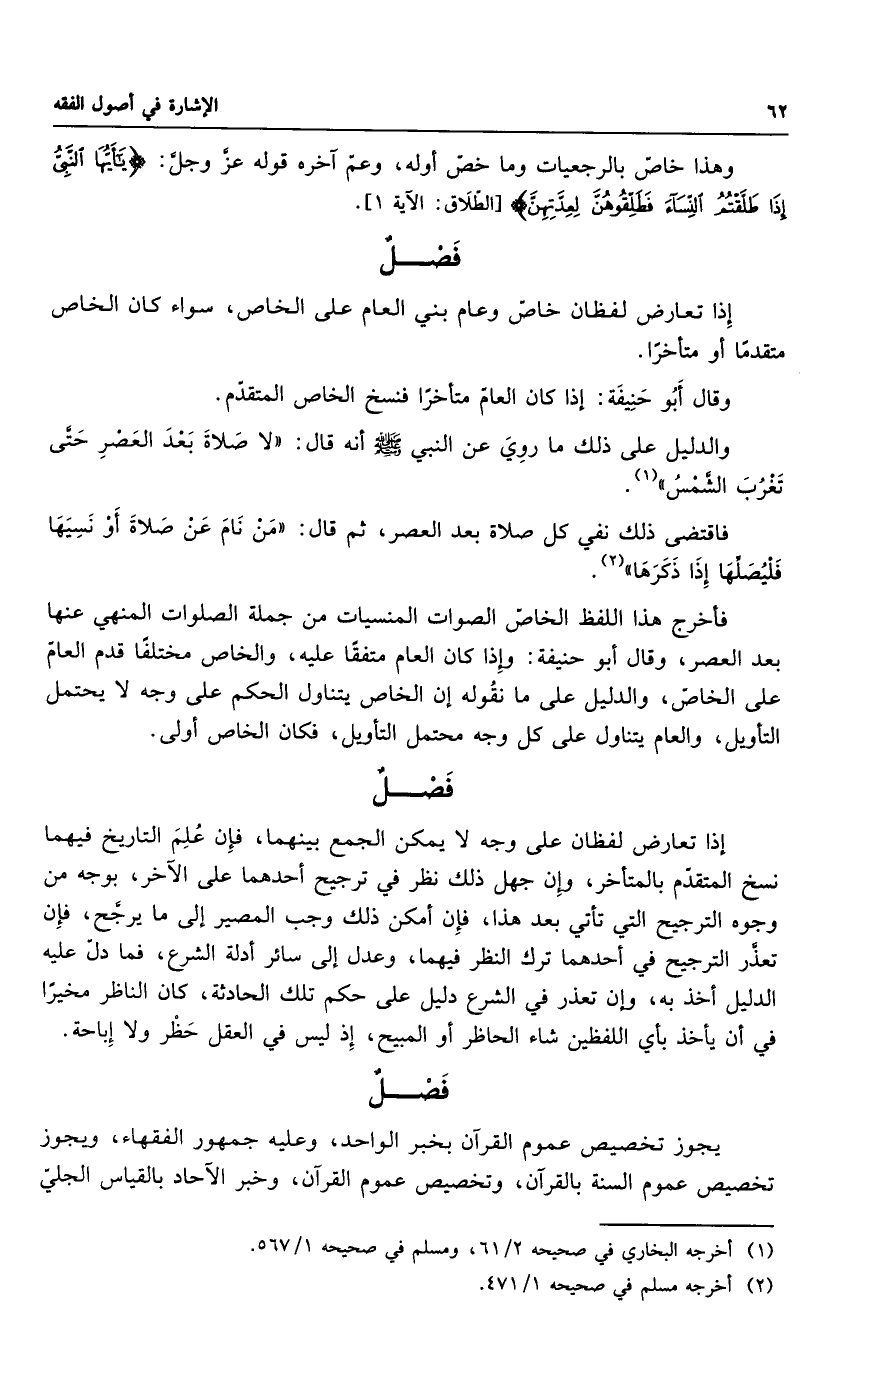 ٦٢ الإشارة في أصول الفقه
وهذا خاصّ بالرجعيات وما خصّ أوله، وعمّ آخره قوله عزَّ وجلَّ: ﴿يَٰٓأَيُّهَا ٱلنَّبِيُّ
إِذَا طَلَّقْتُمُ ٱلنِّسَآءَ فَطَلِّقُوهُنَّ لِعِدَّتِهِنَّ﴾ [الطّلَاق: الآية ١].
فَصْـــلٌ
إِذا تعارض لفظان خاصّ وعام بني العام على الخاص، سواء كان الخاص
متقدمًا أو متأخرًا.
وقال أَبُو حَنِيفَة: إذا كان العامّ متأخرًا فنسخ الخاص المتقدّم.
والدليل على ذلك ما روِيَ عن النبي ﷺ أنه قال: «لا صَلاةَ بَعْدَ العَصْرِ حَتَّى
تَغْرُبَ الشَّمْسُ»(١).
فاقتضى ذلك نفي كل صلاة بعد العصر، ثم قال: «مَنْ نَامَ عَنْ صَلاةَ أَوْ نَسِيَهَا
فَلْيُصَلِّهَا إِذَا ذَكَرَهَا»(٢).
فأخرج هذا اللفظ الخاصّ الصوات المنسيات من جملة الصلوات المنهي عنها
بعد العصر، وقال أبو حنيفة: وإِذا كان العام متفقًا عليه، والخاص مختلفًا قدم العامّ
على الخاصّ، والدليل على ما نقُوله إن الخاص يتناول الحكم على وجه لا يحتمل
التأويل، والعام يتناول على كل وجه محتمل التأويل، فكان الخاص أولى.
فَصْـــلٌ
إذا تعارض لفظان على وجه لا يمكن الجمع بينهما، فإن عُلِمَ التاريخ فيهما
نسخ المتقدّم بالمتأخر، وإن جهل ذلك نظر في ترجيح أحدهما على الآخر، بوجه من
وجوه الترجيح التي تأتي بعد هذا، فإن أمكن ذلك وجب المصير إلى ما يرجَّح، فإن
تعذَّر الترجيح في أحدهما ترك النظر فيهما، وعدل إلى سائر أدلة الشرع، فما دلّ عليه
الدليل أخذ به، وإن تعذر في الشرع دليل على حكم تلك الحادثة، كان الناظر مخيرًا
في أن يأخذ بأي اللفظين شاء الحاظر أو المبيح، إذ ليس في العقل حَظْر ولا إِباحة.
فَصْـــلٌ
يجوز تخصيص عموم القرآن بخبر الواحد، وعليه جمهور الفقهاء، ويجوز
تخصيص عموم السنة بالقرآن، وتخصيص عموم القرآن، وخبر الآحاد بالقياس الجليّ
(١) أخرجه البخاري في صحيحه ٢/ ٦١، ومسلم في صحيحه ١/ ٥٦٧.
(٢) أخرجه مسلم في صحيحه ١/ ٤٧١.